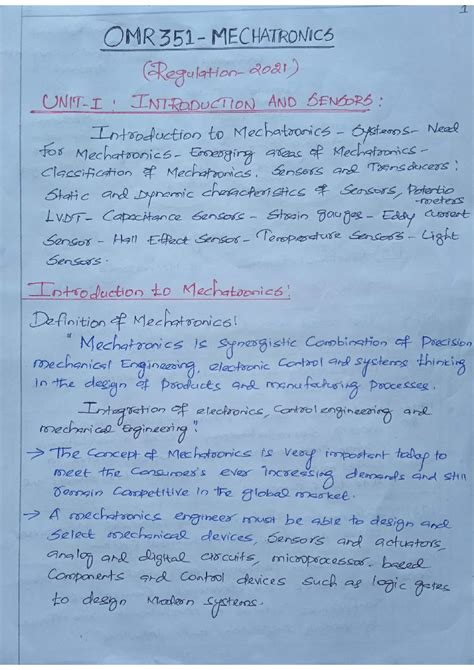 1
OMR351-MECHATRONICS
(Regulation-2021)
UNIT-I: INTRODUCTION AND SENSORS:
Introduction to Mechatronics - Systems - Need
for Mechatronics - Emerging areas of Mechatronics -
Classification of Mechatronics. Sensors and Transducers:
Static and Dynamic characteristics of Sensors, Potentio
-meters
LVDT - Capacitance Sensors - Strain gauges - Eddy current
Sensor - Hall Effect Sensor - Temperature Sensors - Light
Sensors.
Introduction to Mechatronics:
Definition of Mechatronics:
"Mechatronics is Synergistic Combination of Precision
mechanical Engineering, electronic Control and systems thinking
in the design of Products and manufacturing Processes.
Integration of electronics, Control engineering and
mechanical Engineering".
→ The Concept of Mechatronics is very important today to
meet the Consumer's ever increasing demands and still
remain Competitive in the global market.
→ A mechatronics engineer must be able to design and
Select mechanical devices, Sensors and actuators,
analog and digital circuits, microprocessor. based
Components and Control devices such as logic gates
to design Modern systems.